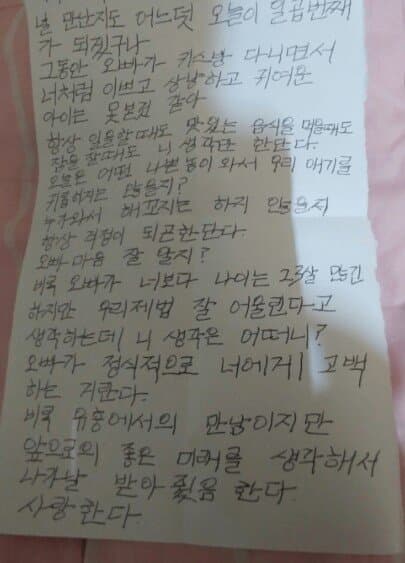 널 만난지도 어느덧 오늘이 일곱번째
가 되겠구나
그동안 오빠가 키스방 다니면서
너처럼 이쁘고 상냥하고 귀여운
아이는 못본것 같아
항상 일을할때도 맛있는 음식을 먹을때도
잠을 잘때도 니 생각만 한단다.
오늘은 어떤 나쁜놈이 와서 우리 애기를
귀찮게하지는 않을지?
누가와서 해꼬지는 하지 않을지
항상 걱정이 되곤한단다.
오빠 마음 잘 알지?
비록 오빠가 너보다 나이는 23살 많긴
하지만 우리제법 잘 어울린다고
생각하는데 니 생각은 어떠니?
오빠가 정식적으로 너에게 고백
하는 거란다.
비록 유흥에서의 만남이지만
앞으로의 좋은 미래를 생각해서
나가날 받아줬음 한다
사랑한다